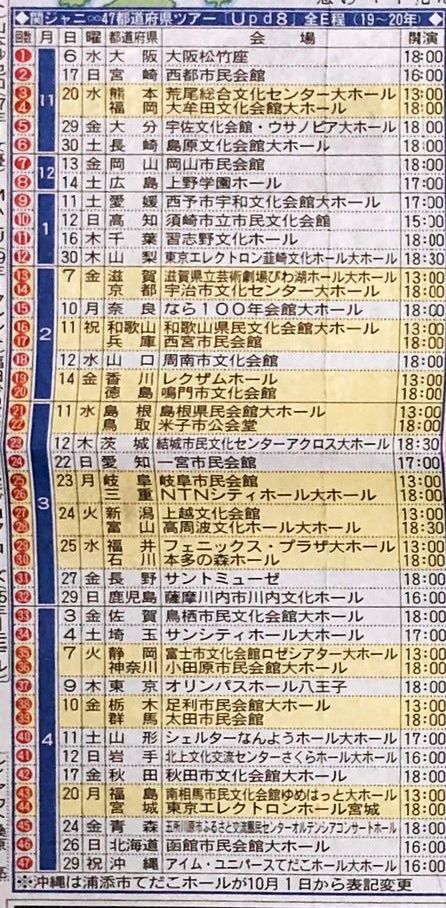 ◆関ジャニ∞47都道府県ツアー「Upd8」全日程(19〜20年)◆
回数 月 日 曜 都道府県 会場 開演
① 11 6 水 大阪 大阪松竹座 18:00
② 17 日 宮崎 西都市民会館 16:00
③ 20 水 熊本 荒尾総合文化センター大ホール 13:00
④ 福岡 大牟田文化会館大ホール 18:00
⑤ 29 金 大分 宇佐文化会館・ウサノピア大ホール 18:00
⑥ 30 土 長崎 島原文化会館大ホール 18:00
⑦ 12 13 金 岡山 岡山市民会館 18:00
⑧ 14 土 広島 上野学園ホール 17:00
⑨ 1 11 土 愛媛 西予市宇和文化会館大ホール 17:00
⑩ 12 日 高知 須崎市立市民文化会館 15:00
⑪ 16 木 千葉 習志野文化ホール 18:00
⑫ 30 木 山梨 東京エレクトロン韮崎文化ホール大ホール 18:30
⑬ 2 7 金 滋賀 滋賀県立芸術劇場びわ湖ホール大ホール 13:00
⑭ 京都 宇治市文化センター大ホール 18:00
⑮ 10 月 奈良 なら100年会館大ホール 18:00
⑯ 11 祝 和歌山 和歌山県民文化会館大ホール 13:00
⑰ 兵庫 西宮市民会館 18:00
⑱ 12 水 山口 周南市文化会館 18:00
⑲ 14 金 香川 レクザムホール 13:00
⑳ 徳島 鳴門市文化会館 18:00
㉑ 3 11 水 島根 島根県民会館大ホール 13:00
㉒ 鳥取 米子市公会堂 18:00
㉓ 12 木 茨城 結城市民文化センターアクロス大ホール 18:30
㉔ 22 日 愛知 一宮市民会館 17:00
㉕ 23 月 岐阜 岐阜市民会館 13:00
㉖ 三重 NTNシティホール大ホール 18:00
㉗ 24 火 新潟 上越文化会館 13:00
㉘ 富山 高周波文化ホール大ホール 18:30
㉙ 25 水 福井 フェニックス・プラザ大ホール 13:00
㉚ 石川 本多の森ホール 18:00
㉛ 27 金 長野 サントミューゼ 18:00
㉜ 29 日 鹿児島 薩摩川内市川内文化ホール 16:00
㉝ 4 3 金 佐賀 鳥栖市民文化会館大ホール 18:00
㉞ 4 土 埼玉 サンシティホール大ホール 17:00
㉟ 7 火 静岡 富士市文化会館ロゼシアター大ホール 13:00
㊱ 神奈川 小田原市民会館大ホール 18:00
㊲ 9 木 東京 オリンパスホール八王子 18:00
㊳ 10 金 栃木 足利市民会館大ホール 13:00
㊴ 群馬 太田市民会館 18:00
㊵ 11 土 山形 シェルターなんようホール大ホール 17:00
㊶ 12 日 岩手 北上文化交流センターさくらホール大ホール 16:00
㊷ 17 金 秋田 秋田市文化会館大ホール 18:00
㊸ 20 月 福島 南相馬市民文化会館ゆめはっと大ホール 13:00
㊹ 宮城 東京エレクトロンホール宮城 18:00
㊺ 24 金 青森 五所川原市ふるさと交流圏民センターオルテンシアコンサートホール 18:00
㊻ 26 日 北海道 函館市民会館大ホール 16:00
㊼ 29 祝 沖縄 アイム・ユニバースてだこホール大ホール 16:00
※沖縄は浦添市てだこホールが10月1日から表記変更